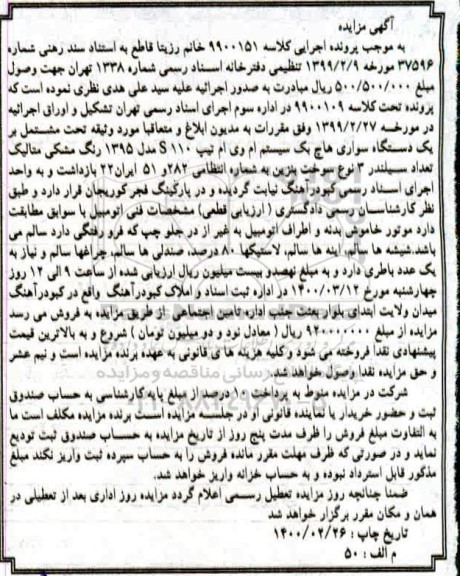 آگهی مزایده
به موجب پرونده اجرایی کلاسه ۹۹۰۰۱۵۱ خانم رزیتا قاطع به استناد سند رهنی شماره
۳۷۵۹۶ مورخه ۱۳۹۹/۲/۹ تنظیمی دفترخانه اسناد رسمی شماره ۱۳۳۸ تهران جهت وصول
مبلغ ۵۰۰/۵۰۰/۰۰۰ ریال مبادرت به صدور اجرائیه علیه سید علی هدی نظری نموده است که
پرونده تحت کلاسه ۹۹۰۰۱۰۹ در اداره سوم اجرای اسناد رسمی تهران تشکیل و اوراق اجرائیه
در مورخه ۱۳۹۹/۲/۲۷ وفق مقررات به مدیون ابلاغ و متعاقبا مورد وثیقه تحت مشتمل بر
یک دستگاه سواری هاچ بک سیستم ام وی ام تیپ S ۱۱۰ مدل ۱۳۹۵ رنگ مشکی متالیک
تعداد سیلندر ۳ نوع سوخت بنزین به شماره انتظامی ۲۸۲و ۵۱ ایران۲۲ بازداشت و به واحد
اجرای اسناد رسمی کبودرآهنگ نیابت گردیده و در پارکینگ فجر کوریجان قرار دارد و طبق
نظر کارشناسان رسمی دادگستری ( ارزیابی قطعی) مشخصات فنی اتومبیل با سوابق مطابقت
دارد موتور خاموش بدنه و اطراف اتومبیل به غیر از در جلو چپ که فرو رفتگی دارد سالم می
باشد.شیشه ها سالم آینه ها سالم، لاستیکها ۸۰ درصد، صندلی ها سالم، چراغها سالم و نیاز به
یک عدد باطری دارد و به مبلغ نهصدو بیست میلیون ریال ارزیابی شده از ساعت ۹ الی ۱۲ روز
چهارشنبه مورخ ۱۴۰۰/۰۳/۱۲ در اداره ثبت اسناد و املاک کبودرآهنگ واقع در کبودرآهنگ
میدان ولایت ابتدای بلوار بعثت جنب اداره تامین اجتماعی از طریق مزایده به فروش می رسد
مزایده از مبلغ ۹۲۰۰۰۰۰۰۰ ریال ( معادل نود و دو میلیون تومان ) شروع و به بالاترین قیمت
پیشنهادی نقدا فروخته می شود و کلیه هزینه های قانونی به عهده برنده مزایده است و نیم عشر
و حق مزایده نقدا وصول خواهد شد.
شرکت در مزایده منوط به پرداخت ۱۰ درصد از مبلغ پایه کارشناسی به حساب صندوق
ثبت و حضور خریدار یا نماینده قانونی او در جلسه مزایده است برنده مزایده مکلف است ما
به التفاوت مبلغ فروش را ظرف مدت پنج روز از تاریخ مزایده به حساب صندوق ثبت تودیع
نماید و در صورتی که ظرف مهلت مقرر مانده فروش را به حساب سپرده ثبت واریز نکند مبلغ
مذکور قابل استرداد نبوده و به حساب خزانه واریز خواهد شد.
ضمنا چنانچه روز مزایده تعطیل رسمی اعلام گردد مزایده روز اداری بعد از تعطیلی در
همان و مکان مقرر برگزار خواهد شد
تاریخ چاپ : ۱۴۰۰/۰۲/۲۶
م الف : ۵۰